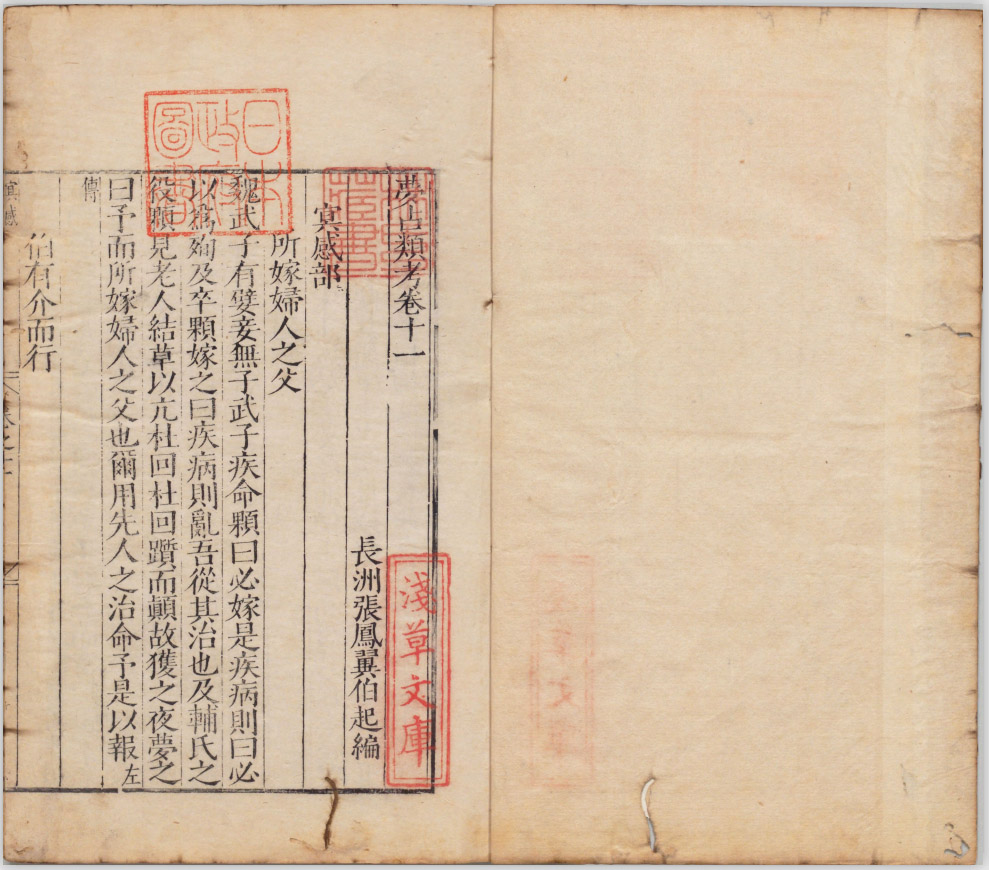 夢占類考卷十一
長洲張鳳翼伯起編
冥感部
所嫁婦人之父
魏武子有嬖妾無子武子疾命顆曰必嫁是疾病則曰必
以爲殉及卒顆嫁之曰疾病則亂吾從其治也及輔氏之
役顆見老人結草以亢杜回杜回躓而顚故獲之夜夢之
曰予而所嫁婦人之父也爾用先人之治命予是以報左
傳
伯有介而行
冥感
日本政府圖書
淺草文庫